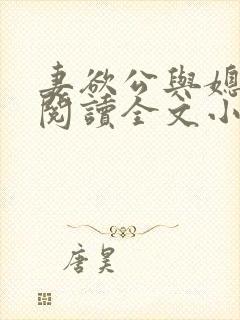 妻欲公與媳
閱讀全文小
唐昊